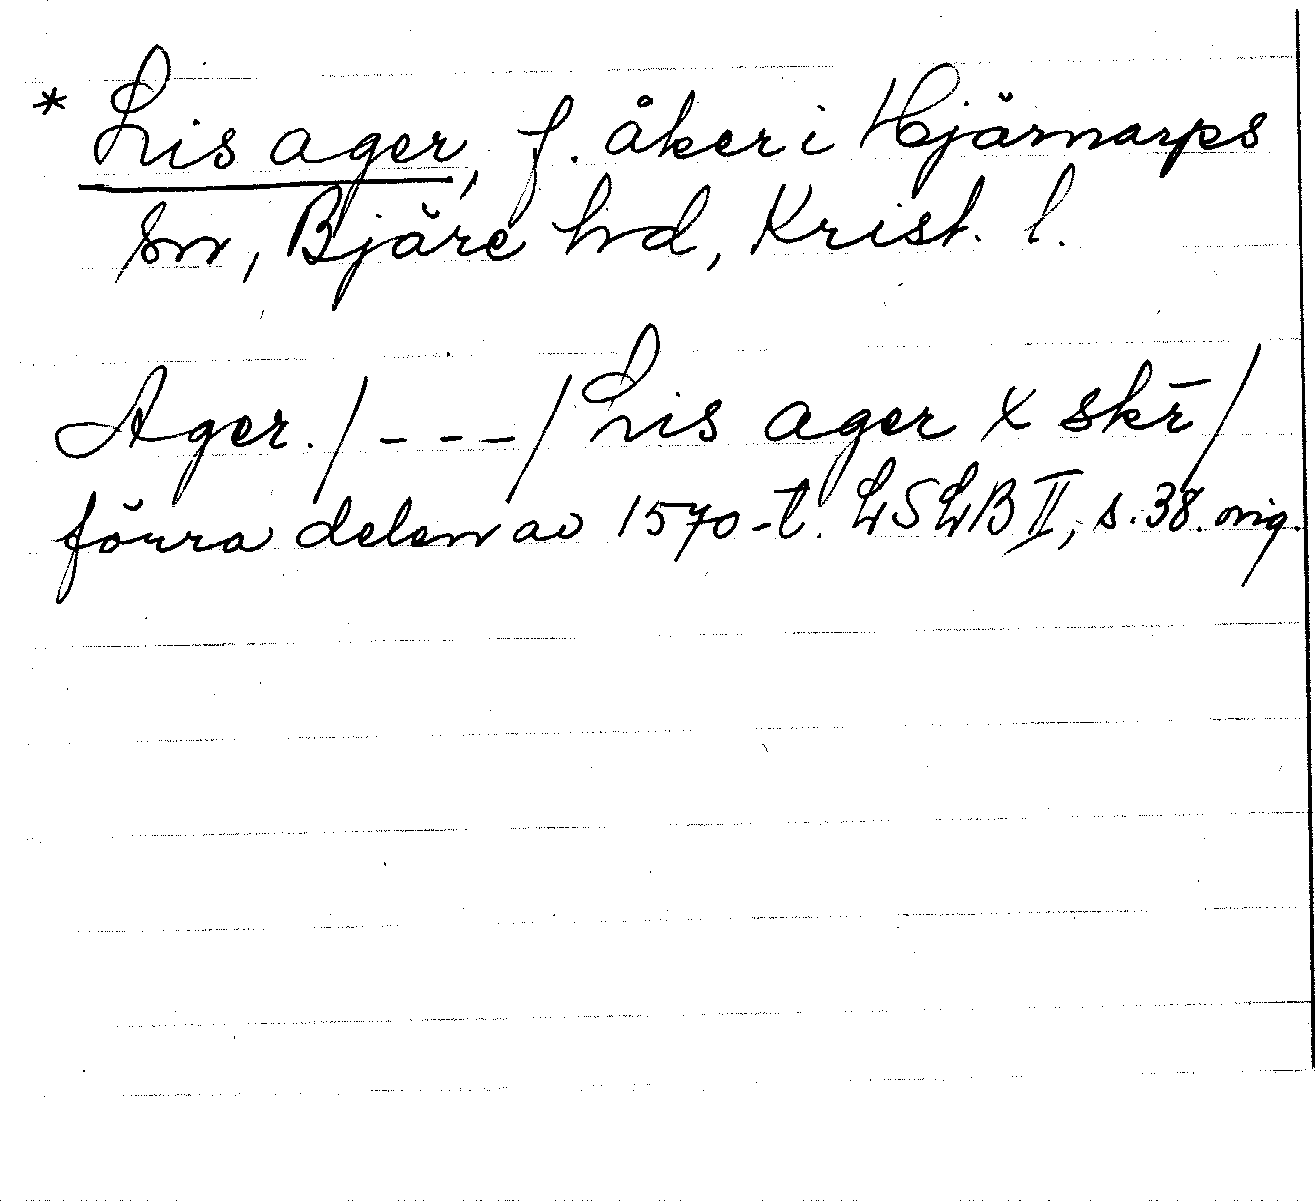 * Lis ager, f. åker i Hjärnarps
sn, Bjäre hd, Krist. l.
Ager. / - - - / Lis ager x skr̄ /
förra delen av 1570-t. LSLB II, s. 38. orig.